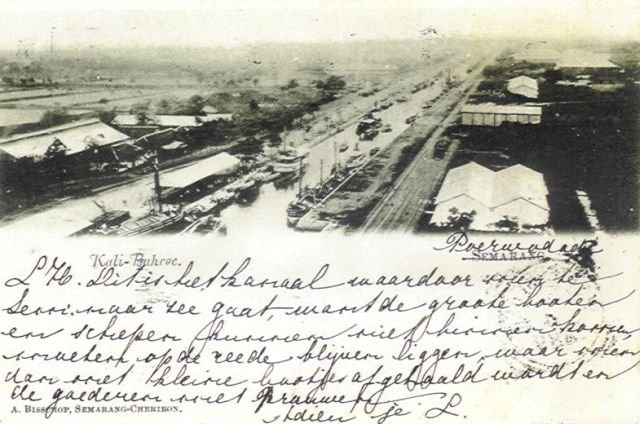 Kali-Bahroe.
SEMARANG
Poerwodadie
L H. Dit is het kanaal waardoor men te
Sem. naar zee gaat, want de groote booten
en schepen kunnen niet binnen komen,
moeten op de reede blijven liggen, waar men
dan met kleine bootjes afgehaald wordt en
de goederen met Prauwen
Adieu je L.
A. BISSCHOP, SEMARANG-CHERIBON.